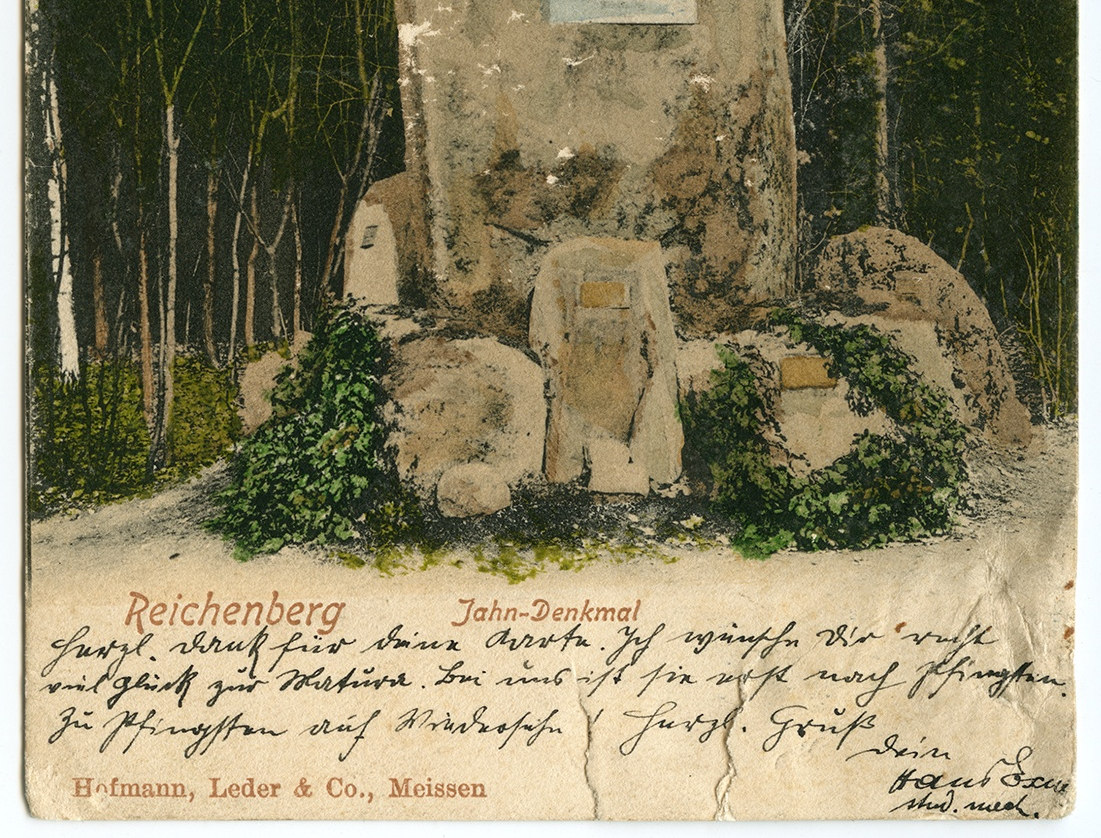 Reichenberg Jahn-Denkmal
Herzl. Dank für deine Karte. Ich wünsche Dir recht
viel Glück zur Matura. Bei uns ist sie erst nach Pfingsten.
Zu Pfingsten auf Wiedersehn! Herzl. Gruß
Dein
Hans
stud. mech.
Hofmann, Leder & Co., Meissen